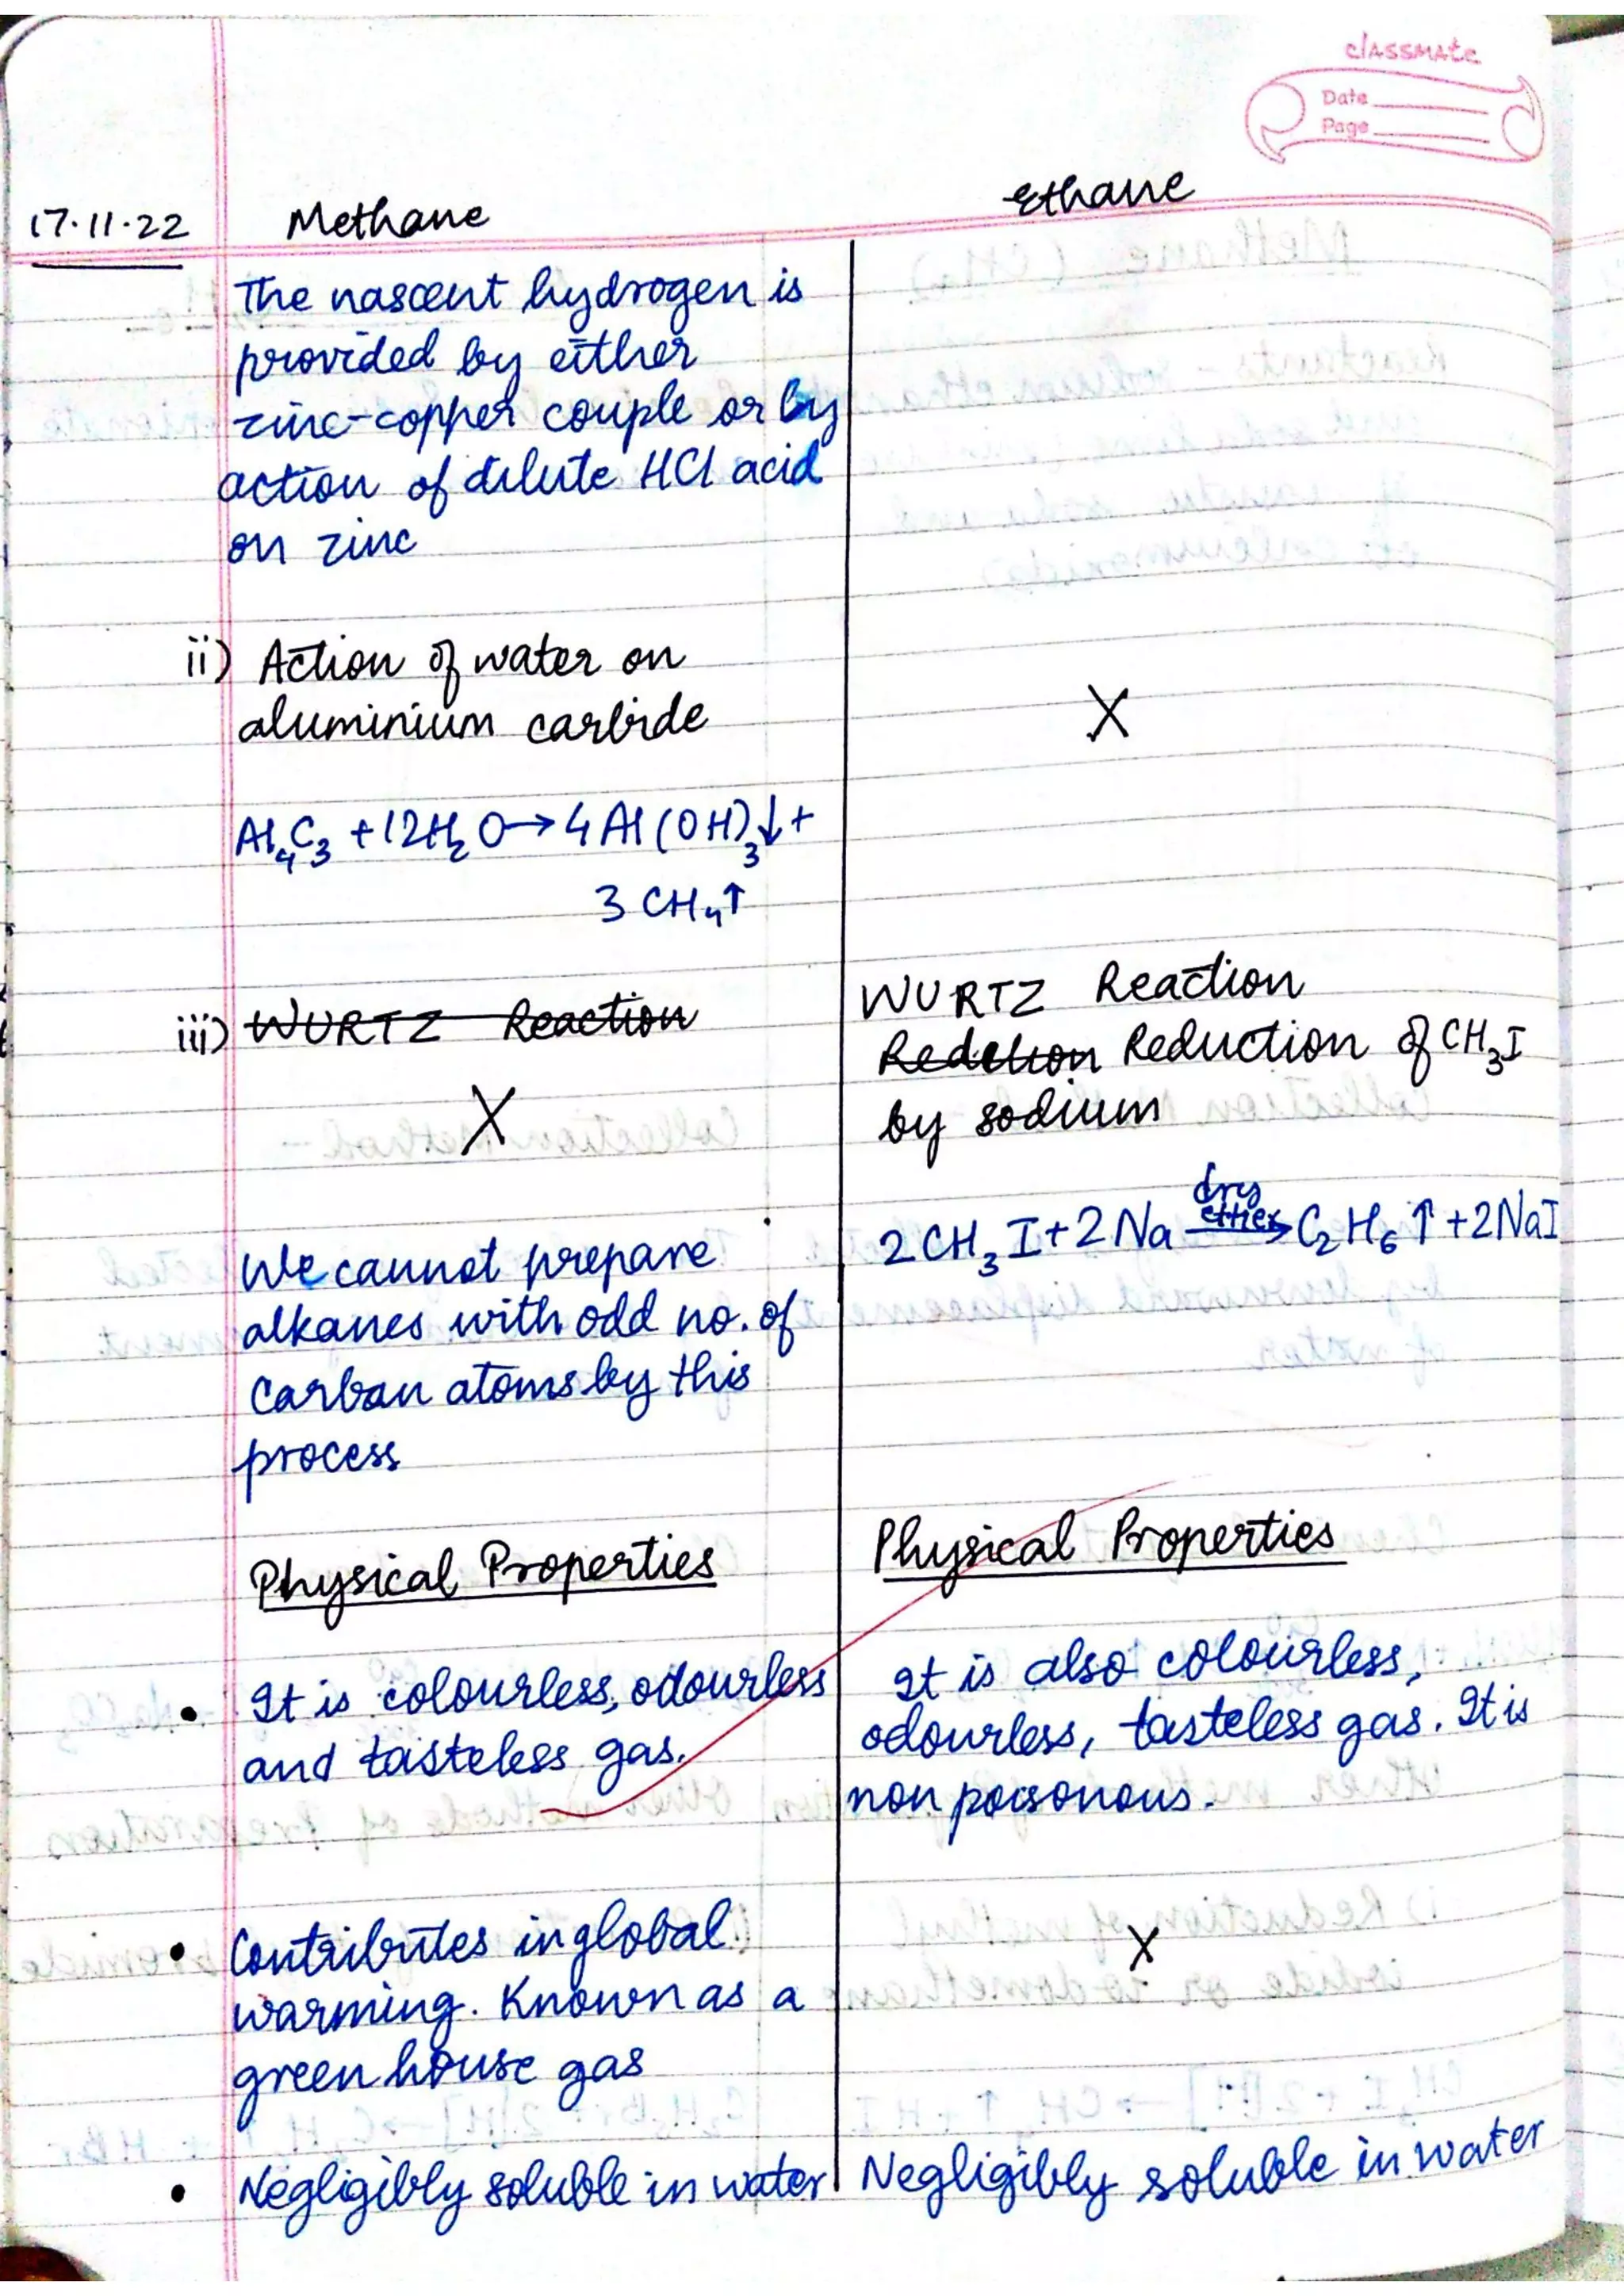 classmate
Date
Page
17.11.22
Methane
Ethane
The nascent hydrogen is
provided by either
zinc-copper couple or by
action of dilute HCl acid
on zinc
ii) Action of water on
aluminium carbide
X
Al₄C₃ + 12H₂O → 4Al(OH)₃↓ +
3CH₄↑
iii) WURTZ Reaction
X
We cannot prepare
alkanes with odd no. of
Carban atoms by this
process
WURTZ Reaction
Reduction of CH₃I
by sodium
dry
ether
2CH₃I + 2Na → C₂H₆↑ + 2NaI
Physical Properties
• It is colourless, odourless
and tasteless gas.
• Contributes in global
warming. Known as a
green house gas
• Negligibly soluble in water
Physical Properties
It is also colourless,
odourless, tasteless gas. It is
non poisonous.
X
Negligibly soluble in water